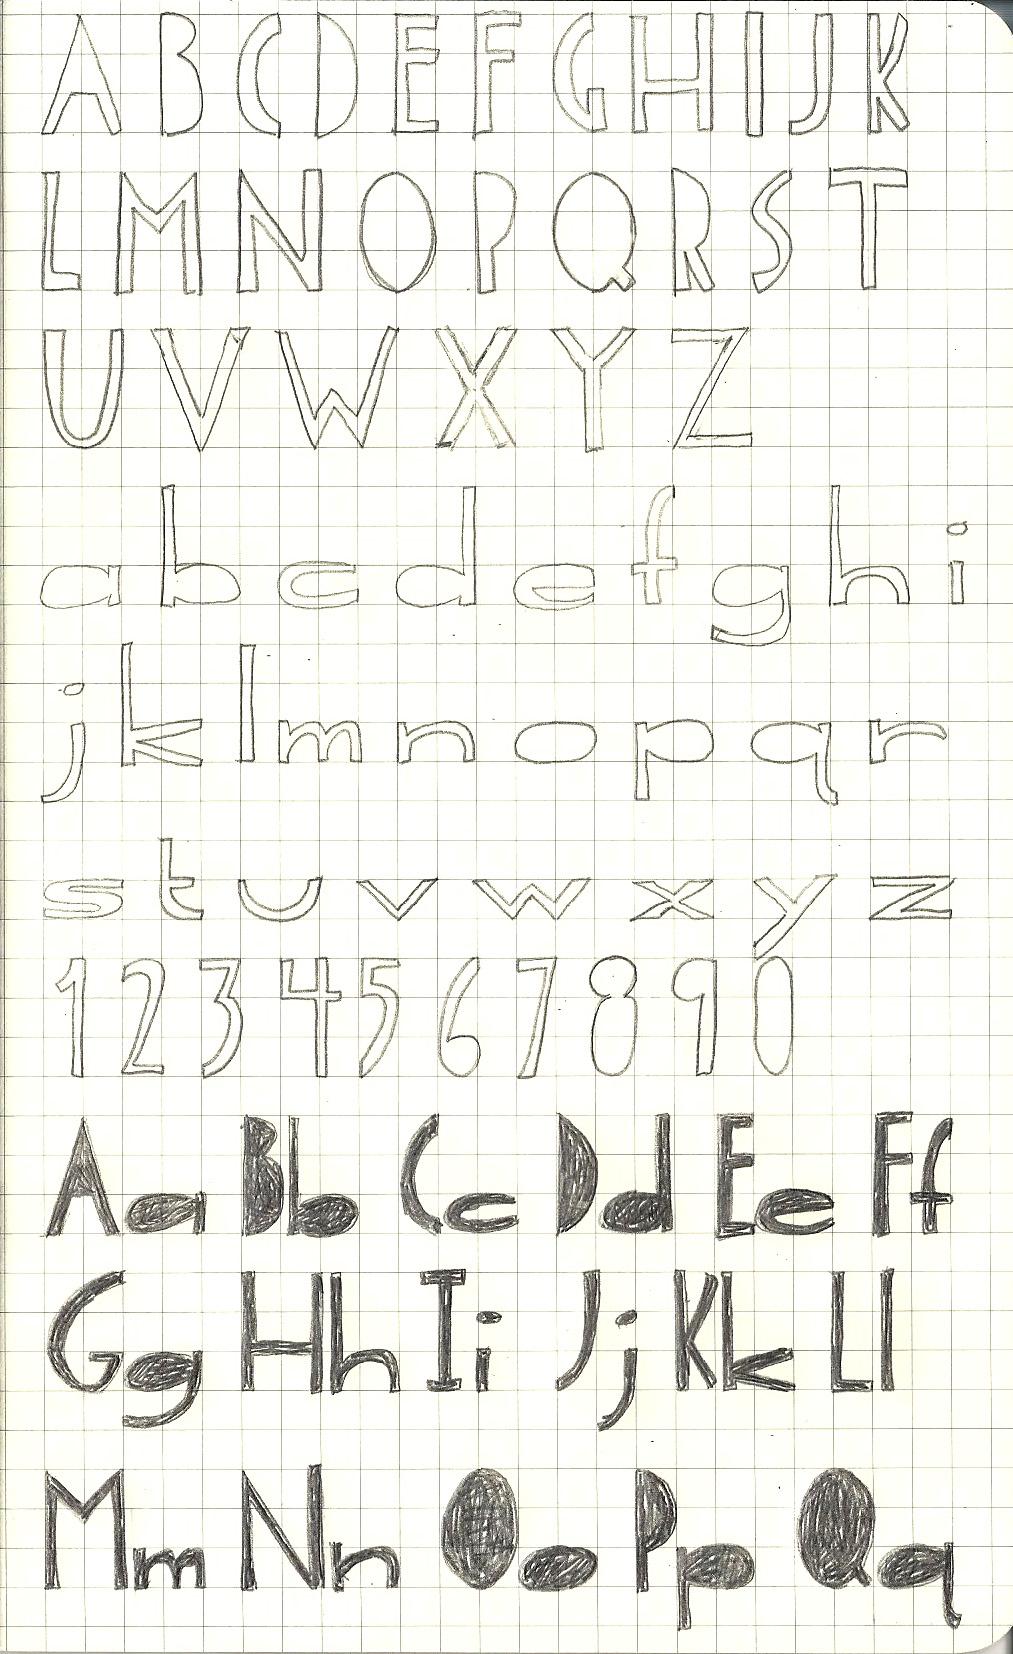 ABCDEFGHIJK
LMNOPQRST
UVWXYZ
abcdefghi
jklmnopqr
stuvwxyz
1234567890
Aa Bb Cc Dd Ee Ff
Gg Hh Ii Jj Kk Ll
Mm Nn Oo Pp Qq